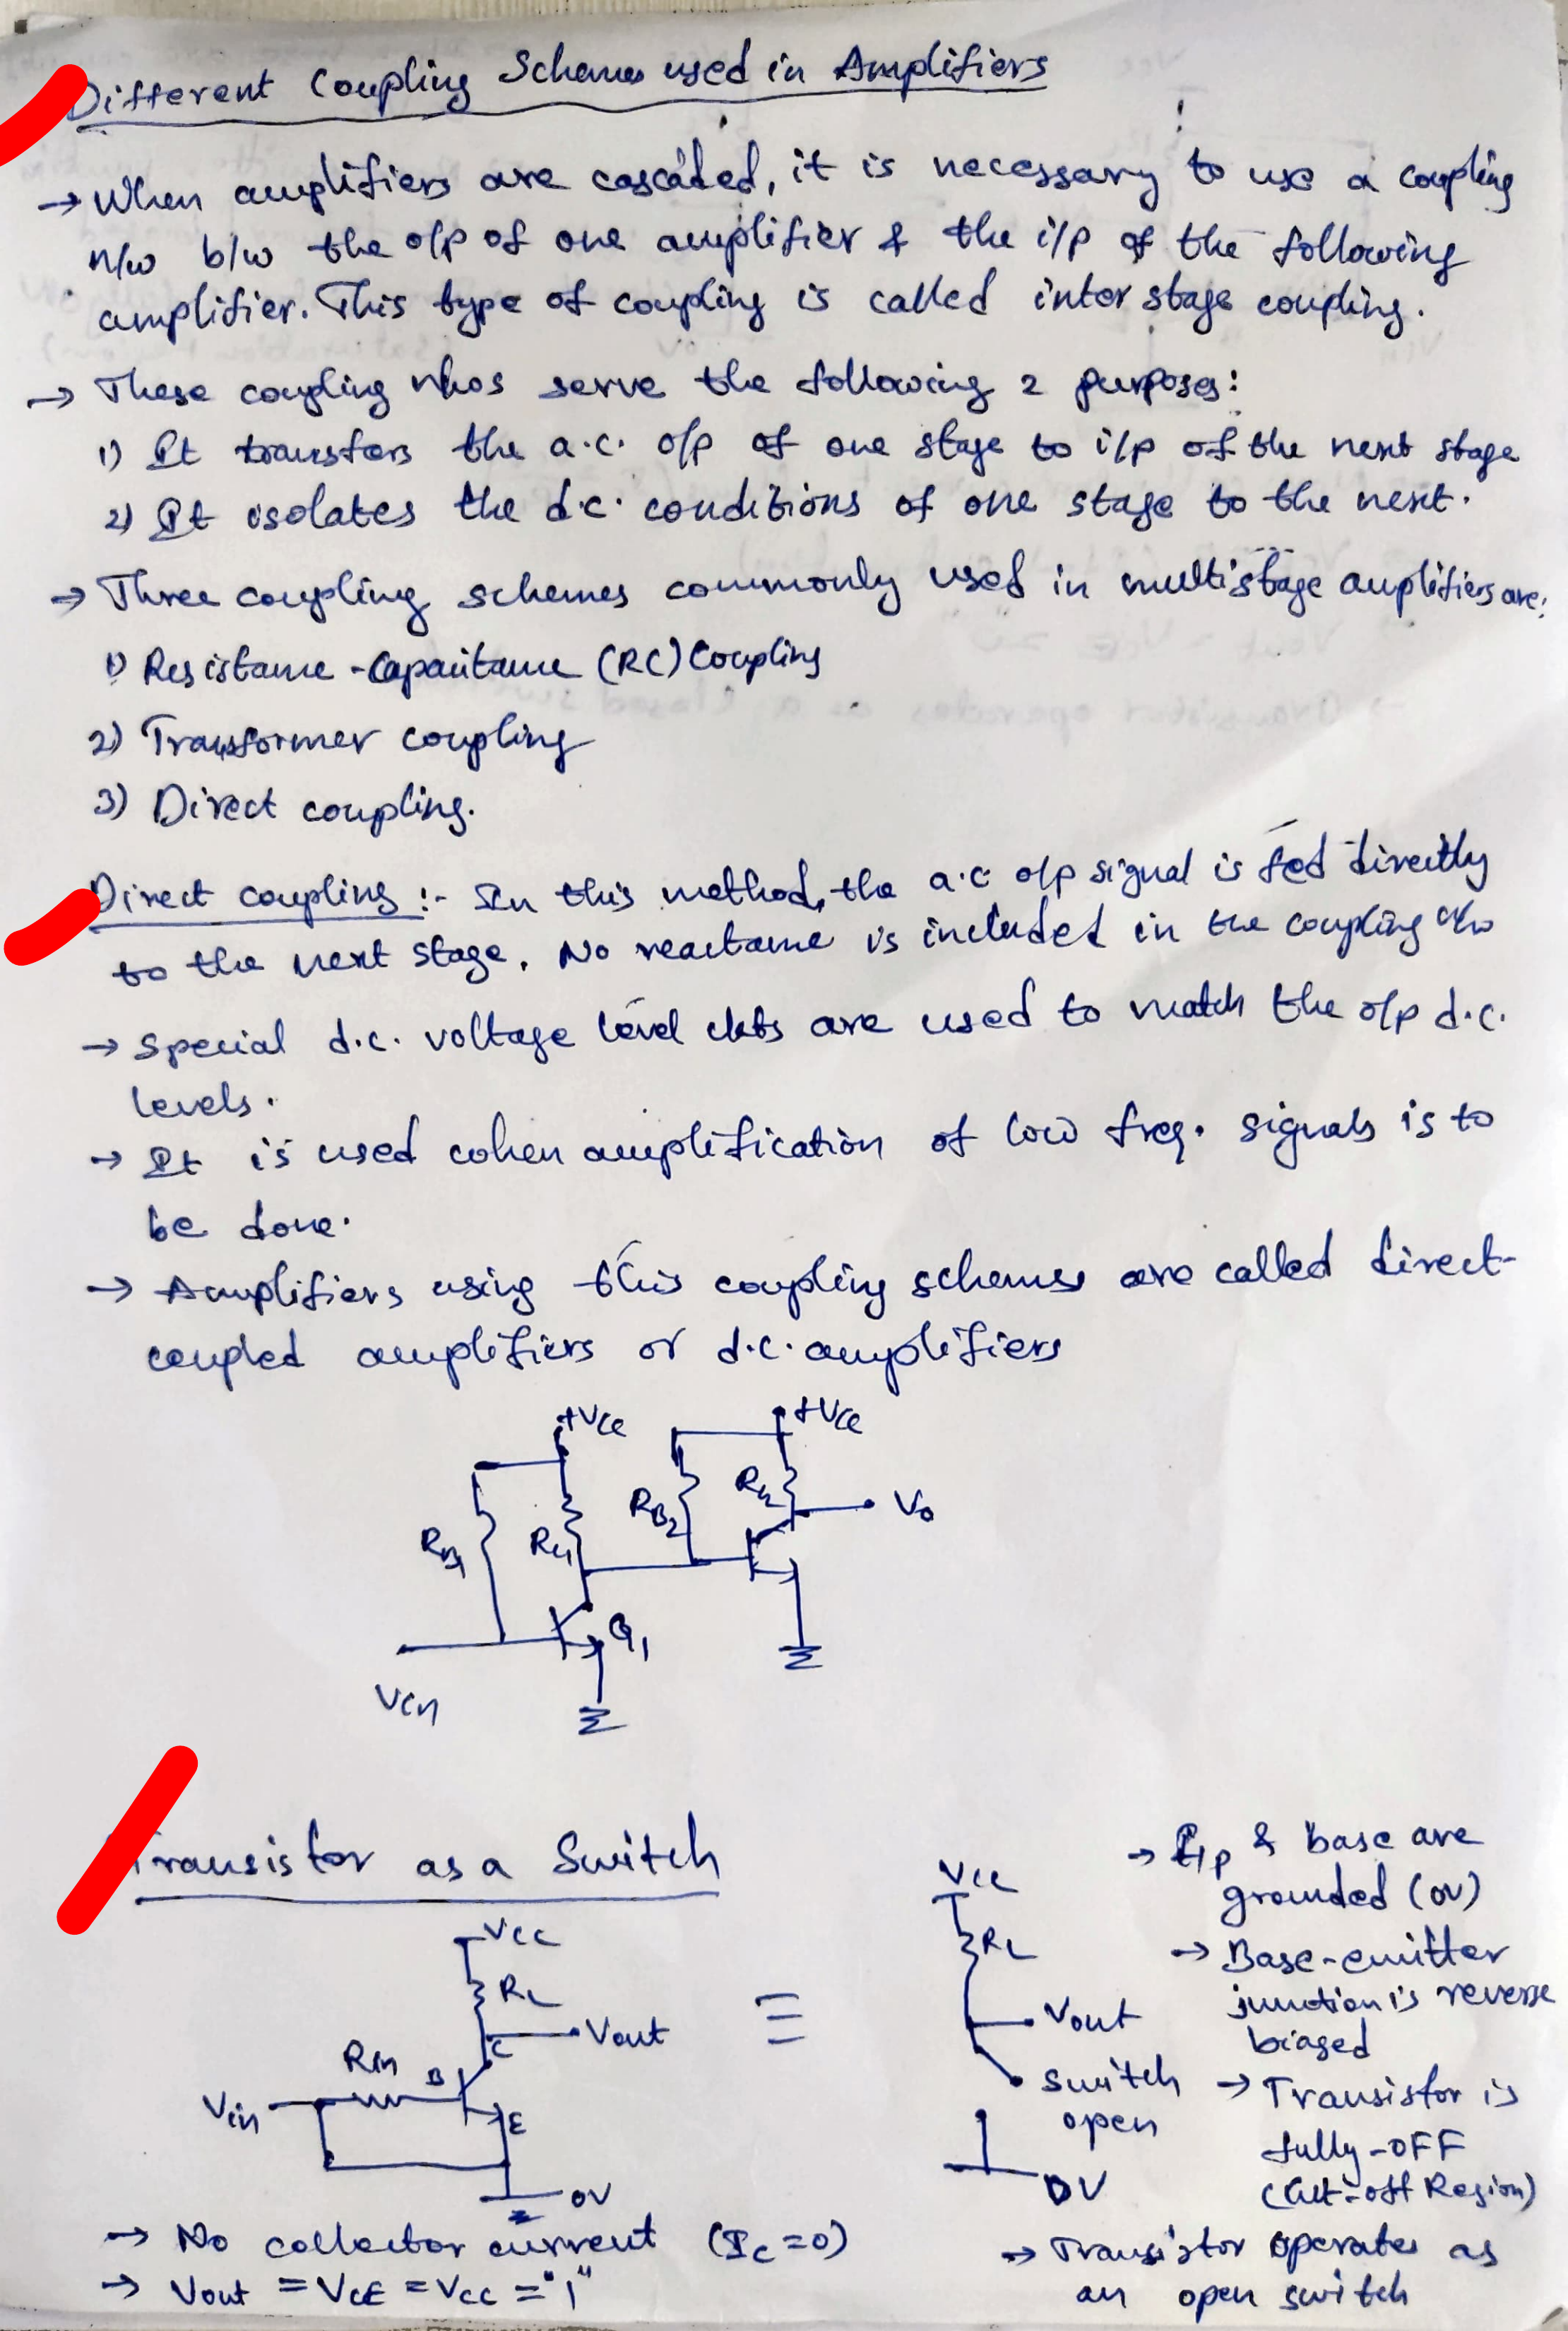 Different Coupling Schemes used in Amplifiers
→ When amplifiers are cascaded, it is necessary to use a coupling
n/w b/w the o/p of one amplifier & the i/p of the following
amplifier. This type of coupling is called inter stage coupling.
→ These coupling n/wos serve the following 2 purposes:
1) It transfers the a.c. o/p of one stage to i/p of the next stage
2) It isolates the d.c. conditions of one stage to the next.
→ Three coupling schemes commonly used in multistage amplifiers are:
1) Resistance - Capacitance (RC) Coupling
2) Transformer coupling
3) Direct coupling.
Direct coupling :- In this method, the a.c o/p signal is fed directly
to the next stage. No reactance is included in the coupling n/w
→ Special d.c. voltage level ckts are used to match the o/p d.c.
levels.
→ It is used when amplification of low freq. signals is to
be done.
→ Amplifiers using this coupling schemes are called direct-
coupled amplifiers or d.c. amplifiers
+Vcc +Vcc
RB1 RC1 RB2 RC2 Vo
Q1
Vin
Transistor as a Switch
Vcc
RL
Vout
C
Rin B
Vin
E
0V
≡
Vcc
RL
Vout
Switch
open
0V
→ I/p & base are
grounded (0V)
→ Base-emitter
junction is reverse
biased
→ Transistor is
fully-OFF
(Cut-off Region)
→ No collector current (Ic=0)
→ Vout = VCE = Vcc = "1"
→ Transistor operates as
an open switch